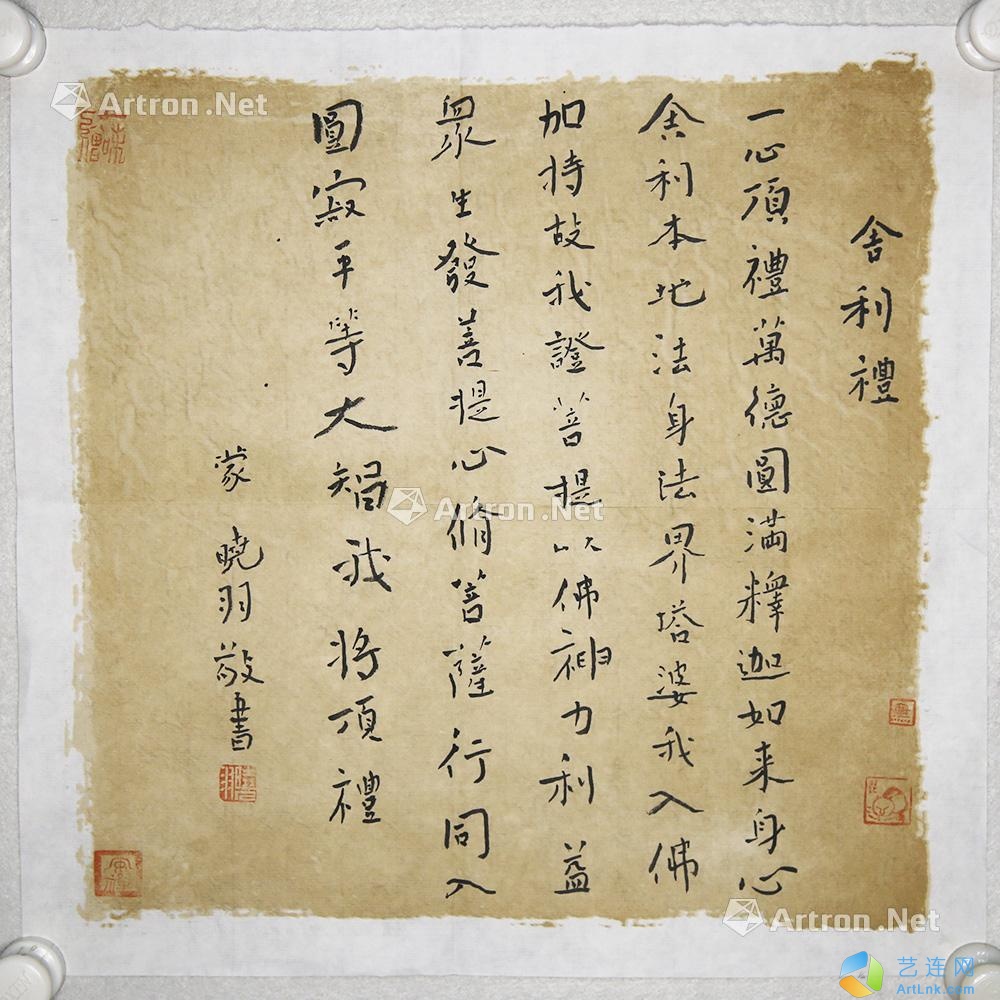 舍利禮
一心頂禮萬德圓滿釋迦如来身心
舍利本地法身法界塔婆我入佛
加持故我證菩提以佛神力利益
衆生發善提心脩菩薩行同入
圓寂平等大智我将頂禮
蒙 曉羽敬書
Artron.Net
Artron.Net
Artron.Net
Artron.Net
艺连网
ArtLnk.com